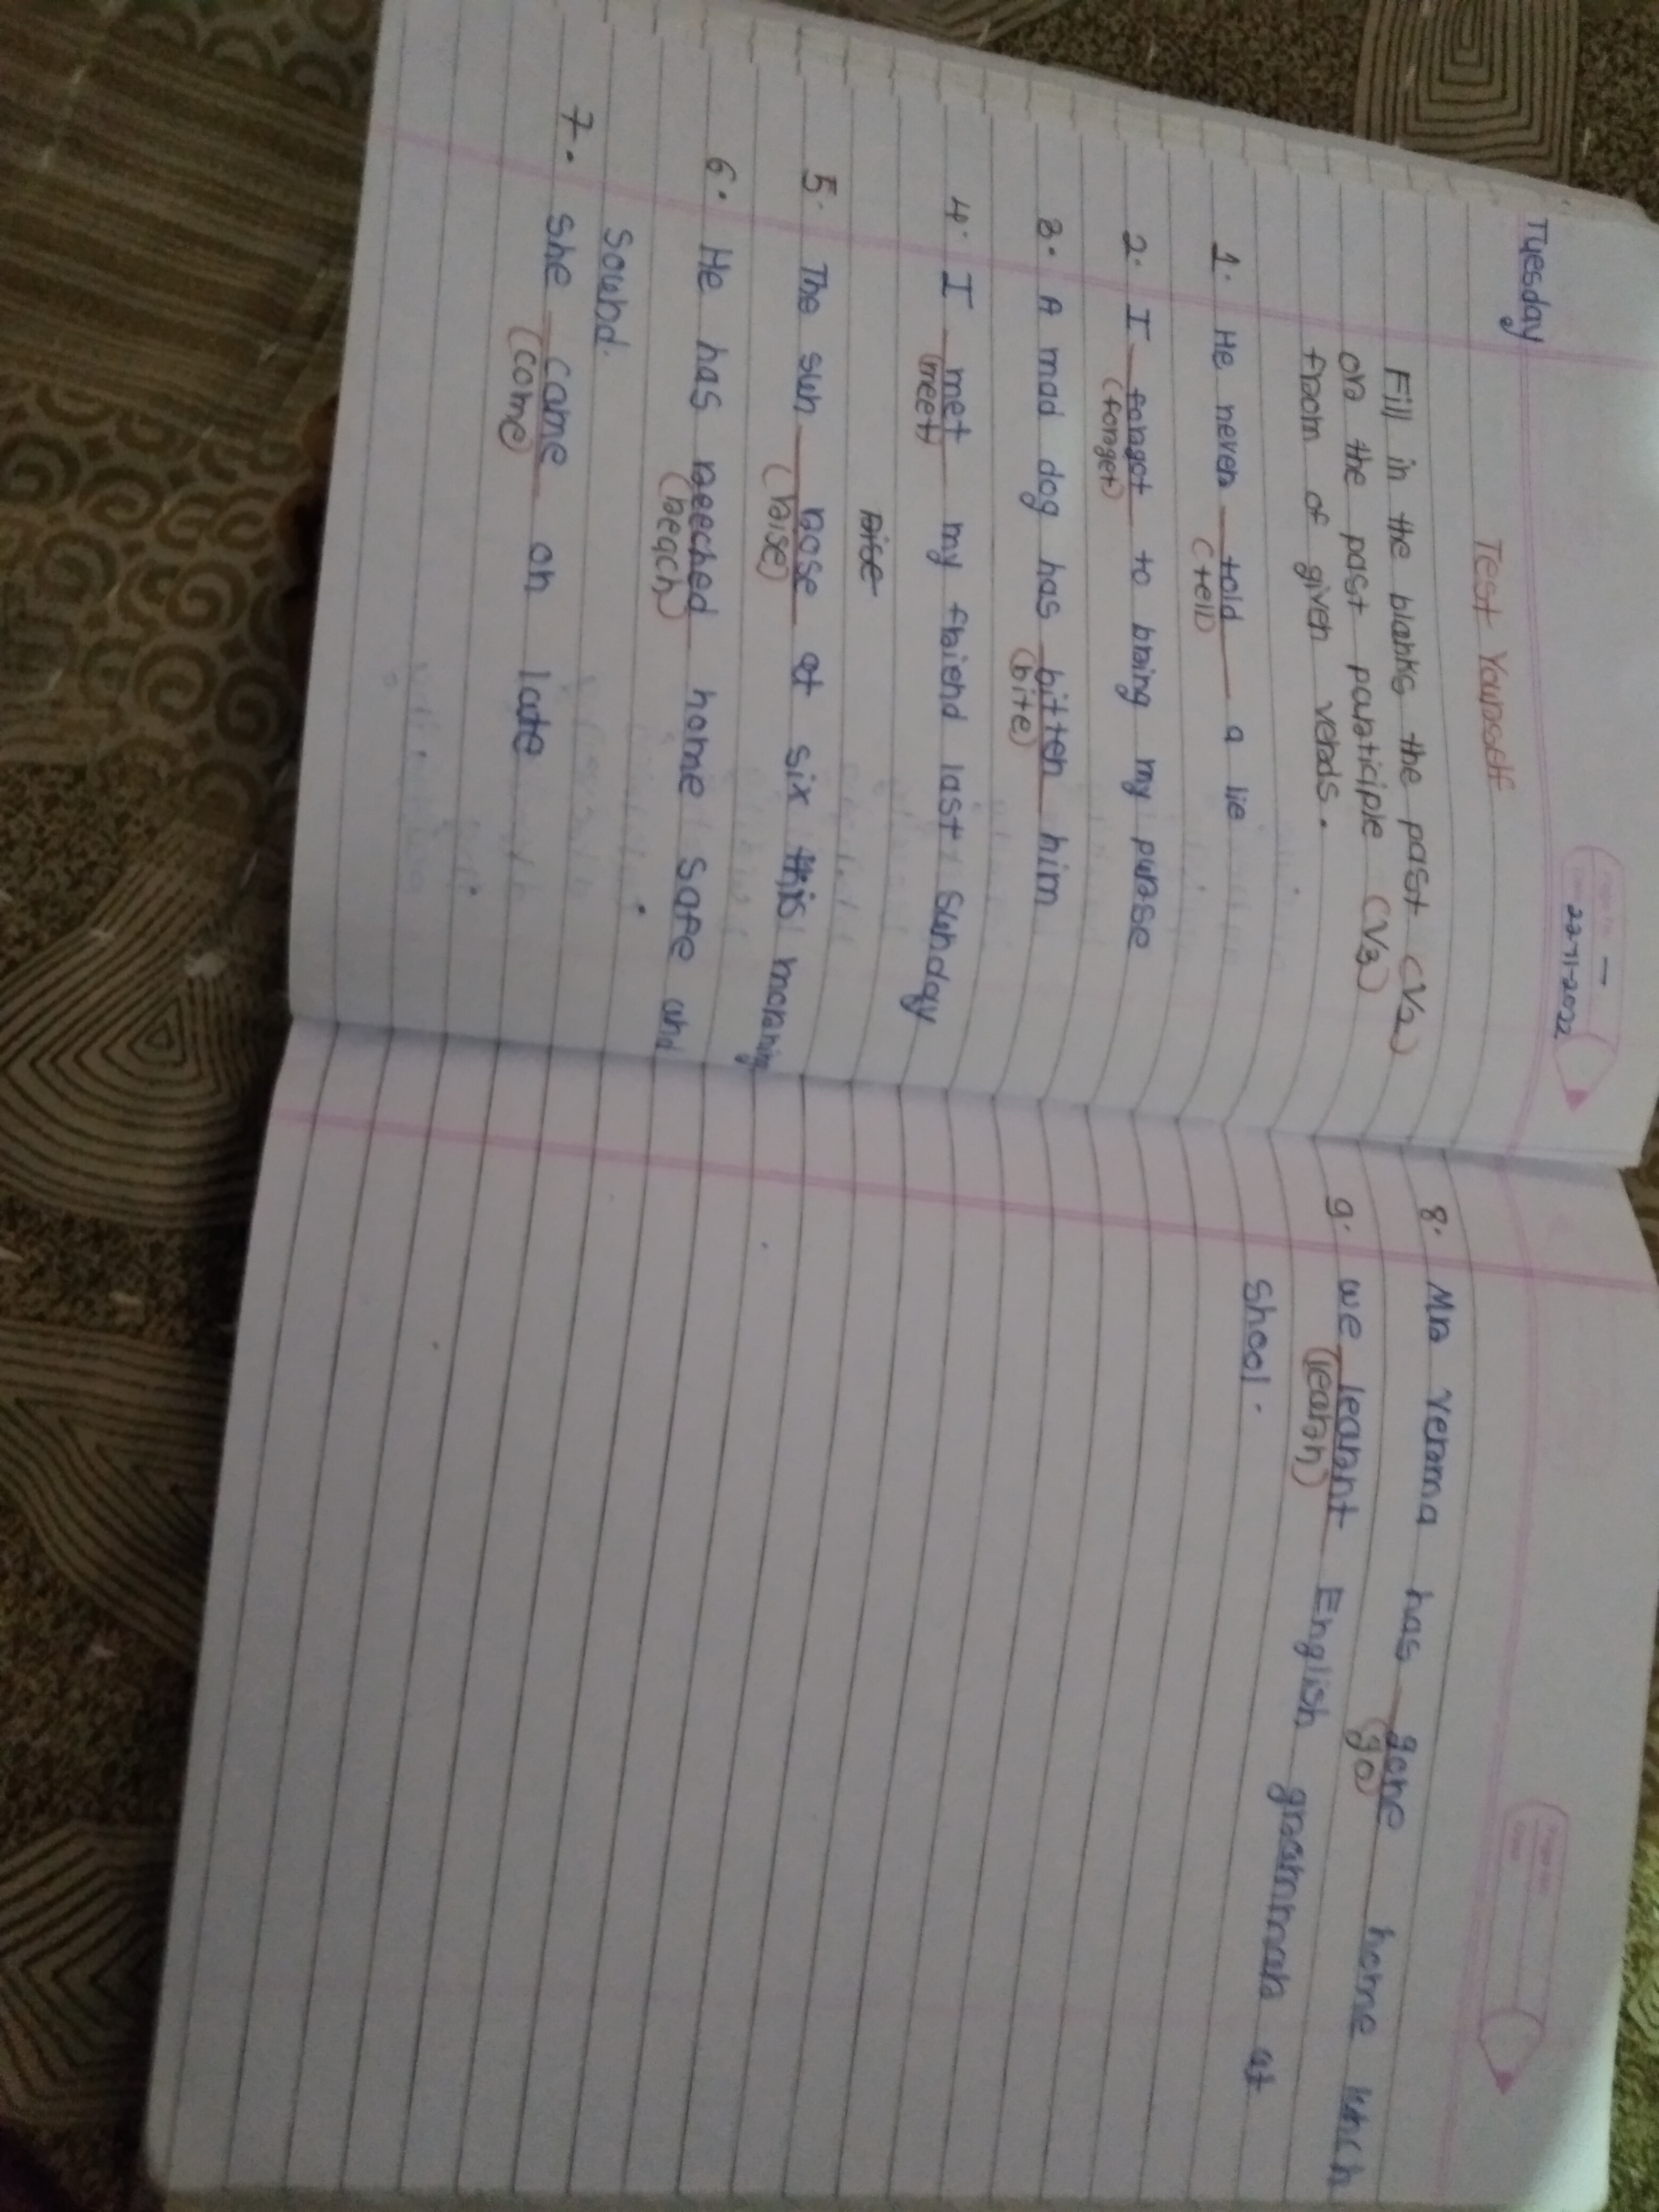 Tuesday
22-11-2022
Test Yourself
Fill in the blanks the past (V2)
or the past participle (V3)
from of given verbs.
1. He never told a lie
(tell)
2. I forgot to bring my purse
(forget)
3. A mad dog has bitten him
(bite)
4. I met my friend last sunday
(meet)
rise
5. The sun rose at six this morning
(raise)
6. He has reeched home safe and
(reach)
Sound.
7. She came on late
(come)
8. Mr verma has gone home
(go)
9. we learnt English grammar at
(learn)
shool.